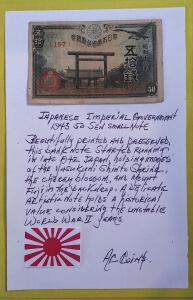 五拾錢
50
JAPANESE IMPERIAL GOVERNMENT
1943 50 SEN SMALL NOTE
BEAUTIFULLY PRINTED AND PRESERVED,
THIS BANK NOTE STARTED RUNNING
IN LATE 1942 JAPAN, HOLDING IMAGES
OF THE YASUKUNI SHINTO SHRINE,
THE CHERRY BLOSSOM, AND MOUNT
FUJI IN THE BACKDROP. A DELICATE
NOTE HOLDS A HISTORICAL
VALUE CONSIDERING THE UNSTABLE
WORLD WAR II YEARS